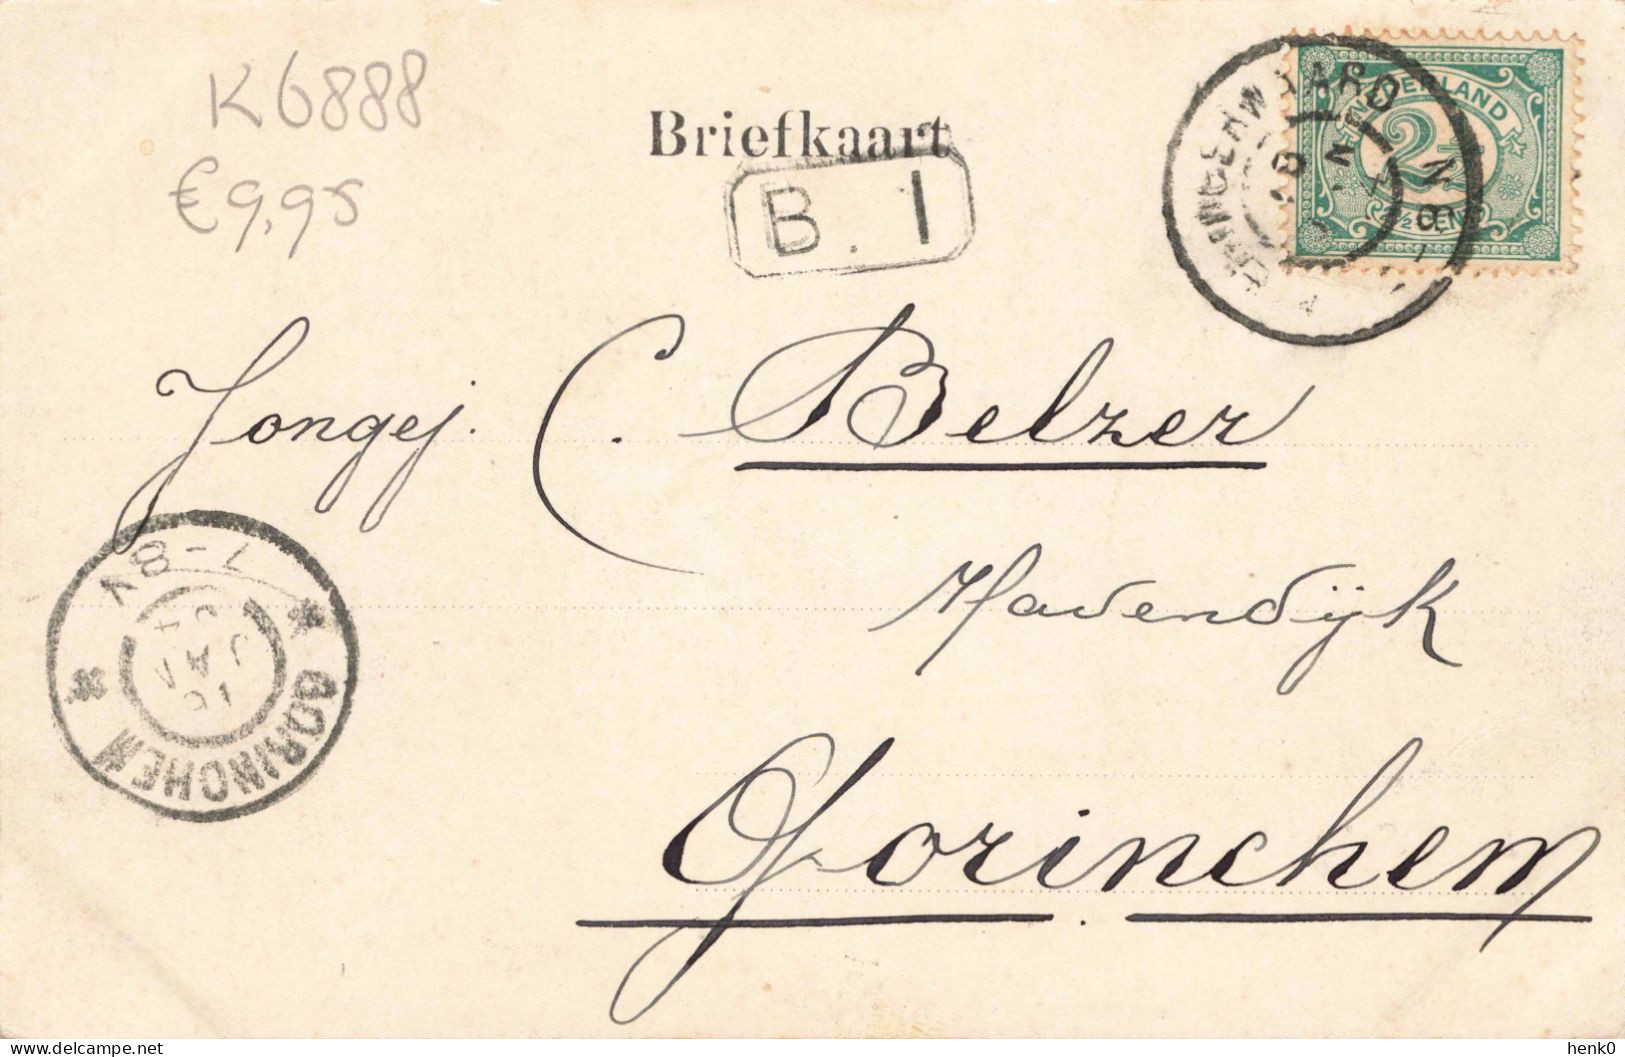 K6888
€9,95
Briefkaart
B. 1
NEDERLAND
2½
2½ CENT
Jongej. C. Belzer
Havendijk
Gorinchem
7-8V
GORINCHEM
delcampe.net
henk0